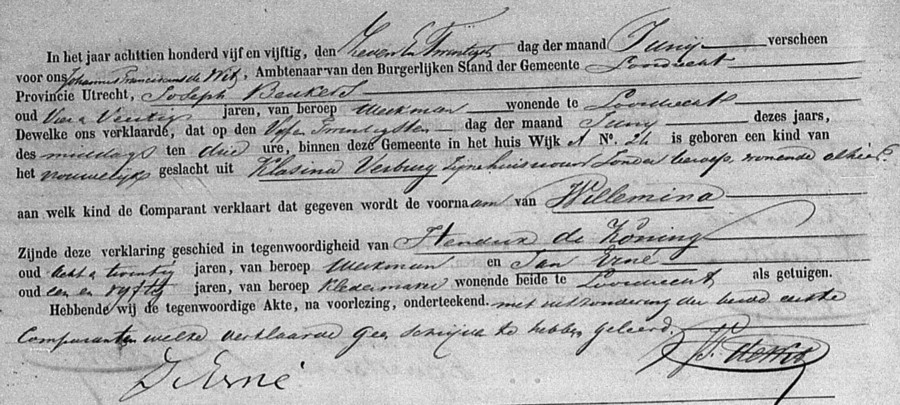 In het jaar achttien honderd vijf en vijftig, den Zeven En Twintigste dag der maand Juny verscheen
voor ons Johannes Franciscus de Wit, Ambtenaar van den Burgerlijken Stand der Gemeente Loosdrecht
Provincie Utrecht, Joseph Beukers
oud Vier a Veertig jaren, van beroep Werkman wonende te Loosdrecht
Dewelke ons verklaarde, dat op den Vyfen Twentigsten dag der maand Juny dezes jaars,
des middags ten drie ure, binnen deze Gemeente in het huis Wijk A No. 24 is geboren een kind van
het vrouwelijk geslacht uit Klasina Verburg Zyne huisvrouw Zonder beroep, wonende alhier
aan welk kind de Comparant verklaart dat gegeven wordt de voornaam van Willemina
Zijnde deze verklaring geschied in tegenwoordigheid van Hendrik de Koning
oud acht a twentig jaren, van beroep Werkman en Jan Erné
oud een en vyftig jaren, van beroep Kledermaker wonende beide te Loosdrecht als getuigen.
Hebbende wij de tegenwoordige Akte, na voorlezing, onderteekend. met uitzondering der beide eerste
Comparanten welke verklaarde geen schryven te hebben geleerd.
J. Erné
de Wit